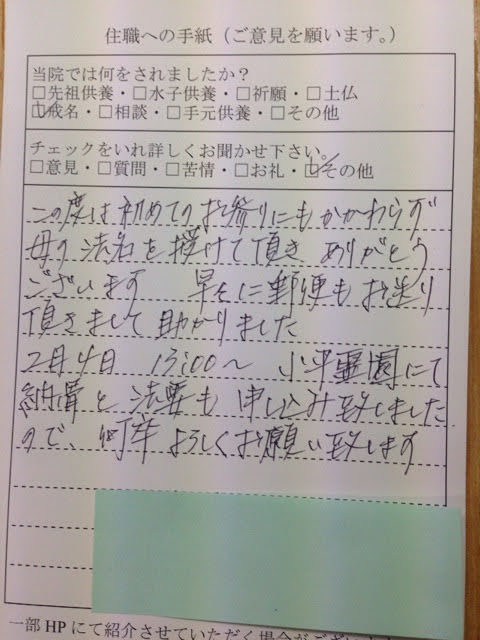 住職への手紙（ご意見を願います。）
当院では何をされましたか？
□先祖供養・□水子供養・□祈願・□土仏
☑戒名・□相談・□手元供養・□その他
チェックをいれ詳しくお聞かせ下さい。
□意見・□質問・□苦情・□お礼・☑その他
この度は初めてのお参りにもかかわらず
母の法名を授けて頂き ありがとう
ございます 早々に郵便もお送り
頂きまして助かりました
2月4日 13:00～ 小平霊園にて
納骨と法要も申し込み致しました
ので、何卒よろしくお願い致します
一部HPにて紹介させていただく場合がござい